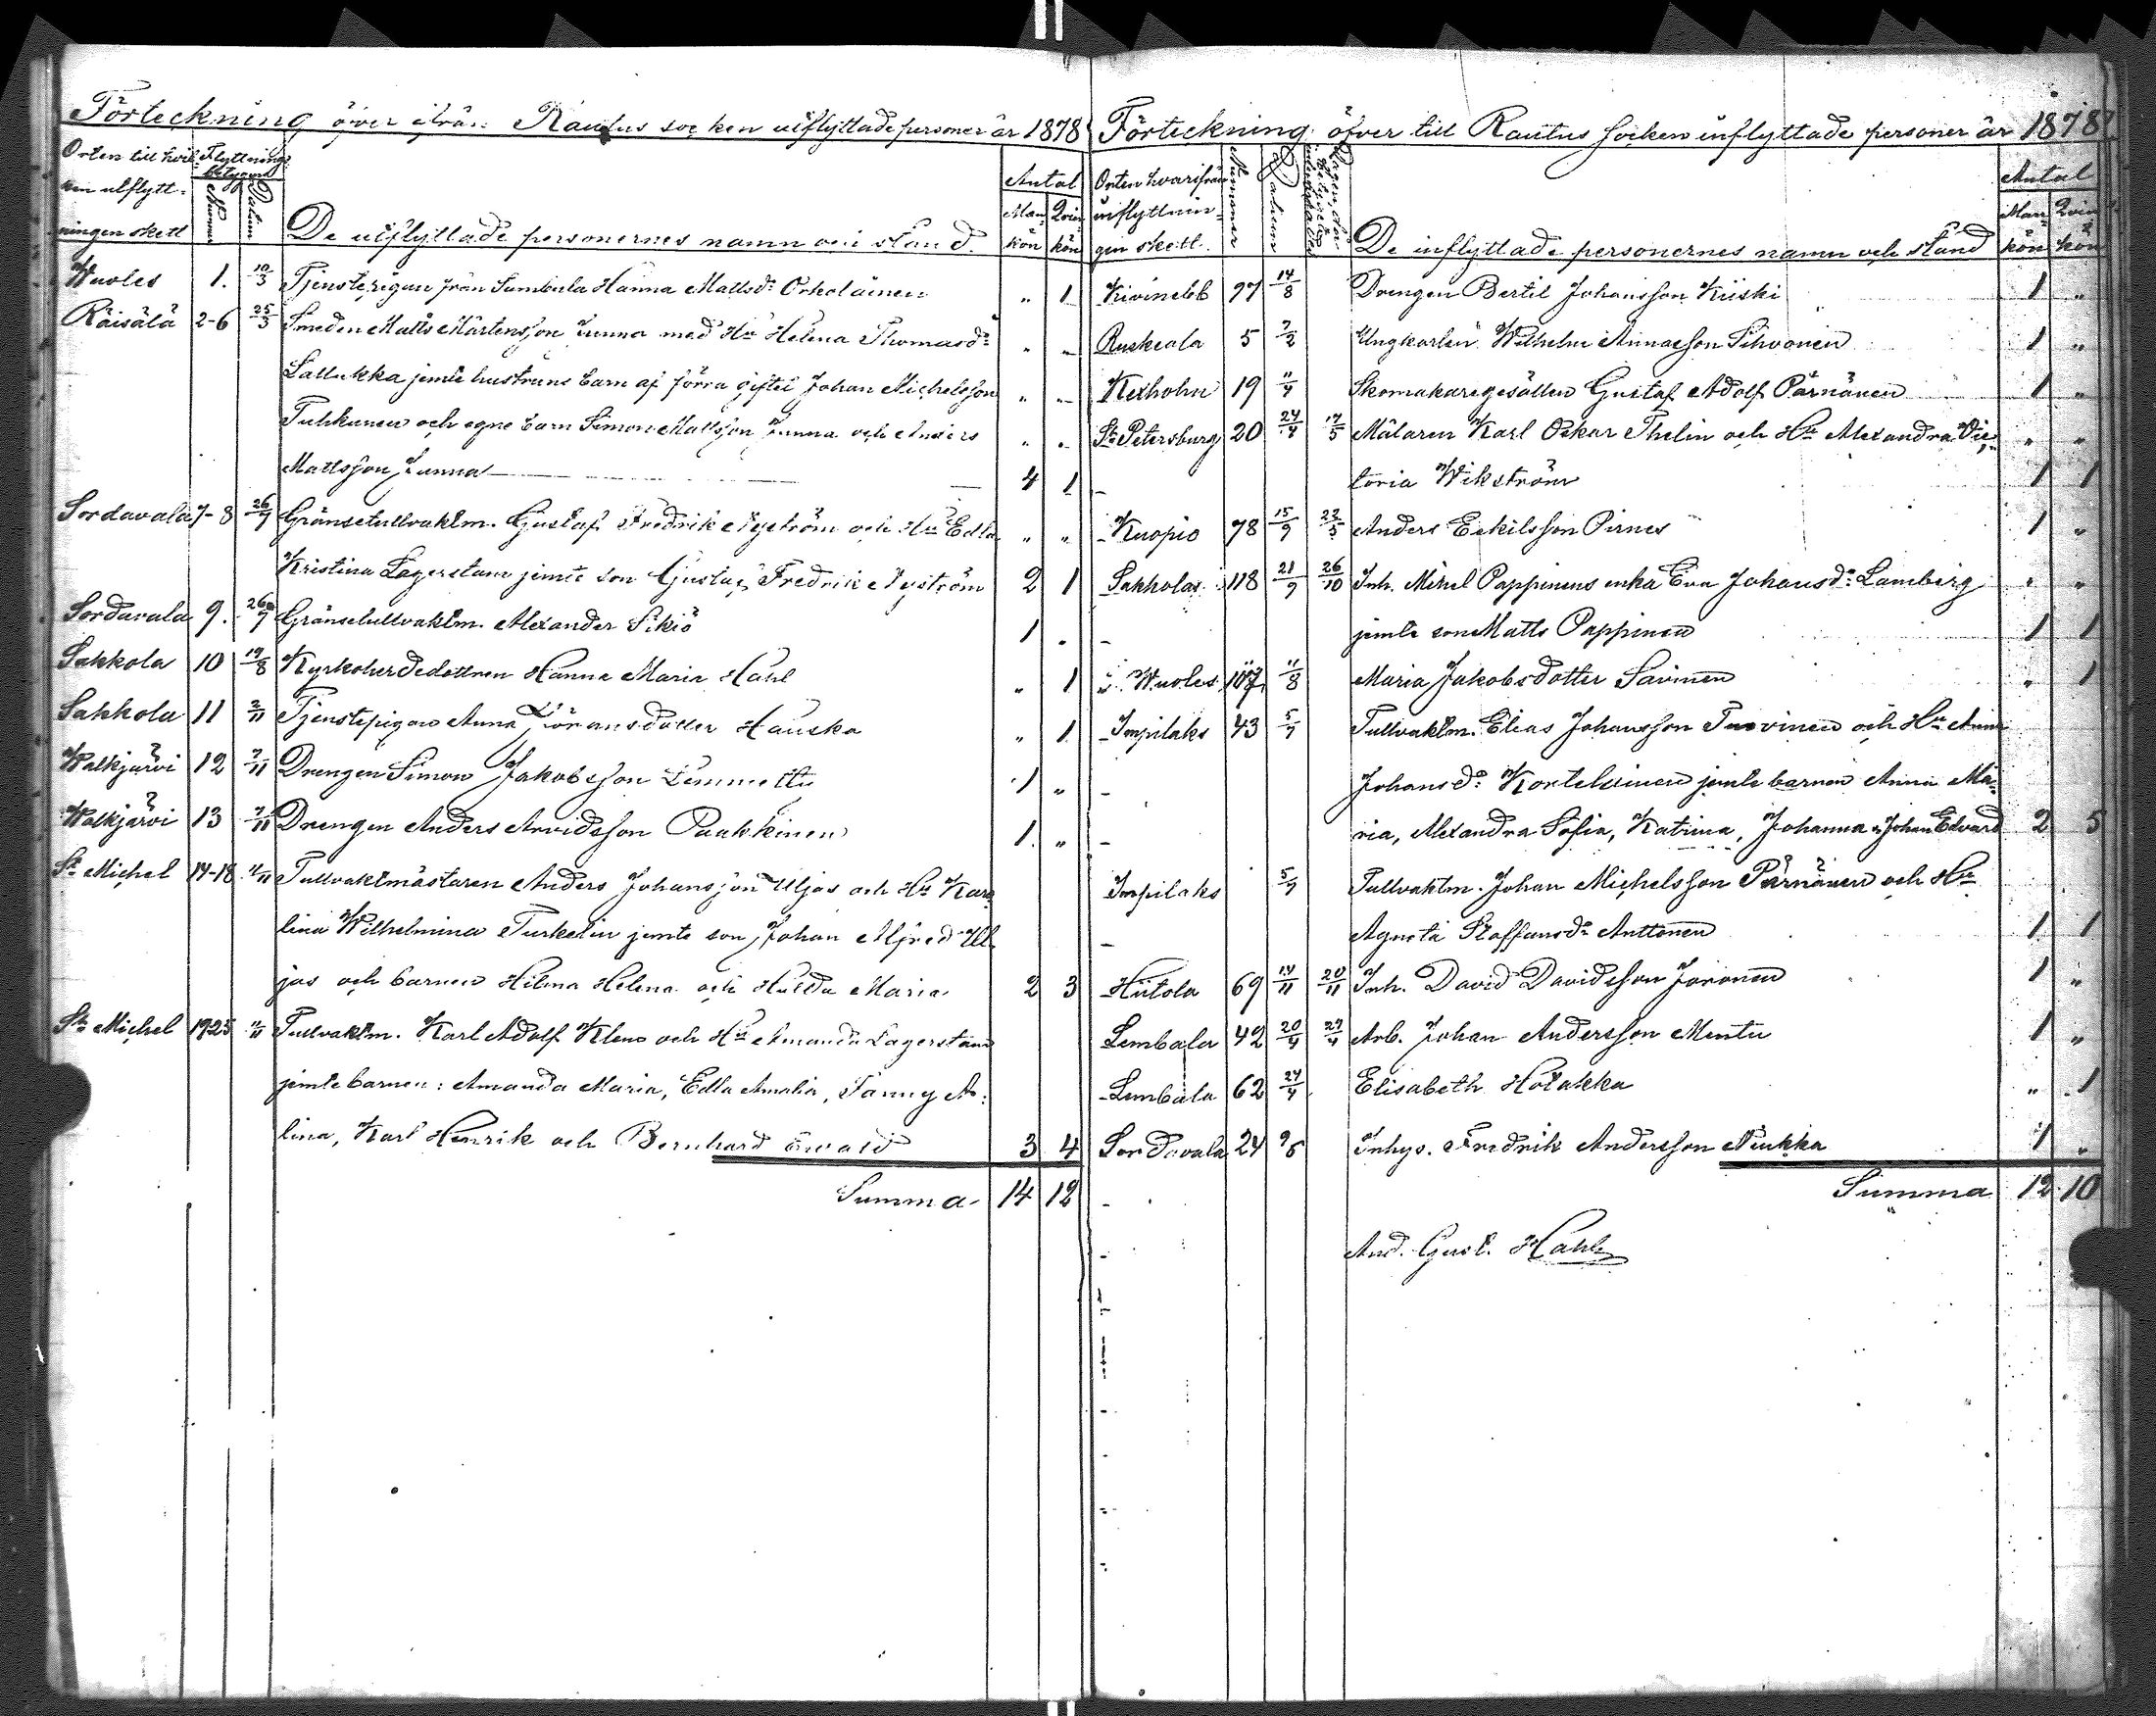 Förteckning öfver ifrån Rautus socken utflyttade personer år 1878
Orten till hvil- Flyttnings
ken utflytt- betygens
ningen skett Nummer Datum De utflyttade personernes namn och stånd. Antal Man kön Qvin kön
Wuoles 1. 10/3 Tjenstepigan från Sumbula Hanna Mattsdr Orholainen " 1
Räisälä 2-6 25/3 Smeden Matts Mårtensson Junna med Hu Helena Thomasdr " "
Lallukka jemte hustruns barn af förra giftet Johan Michelsson " "
Tuhkunen och egne barn Simon Mattsson Junna och Anders " "
Mattsson Junna 4 1
Sordavala 7-8 26/7 Gränsetullvaktm. Gustaf Fredrik Nyström och Hu Edla " "
Kristina Lagerstam jemte son Gustaf Fredrik Nyström 2 1
Sordavala 9. 26/7 Gränsetullvaktm. Alexander Sikiö 1 "
Sakkola 10 19/8 Kyrkoherdedottren Hanna Maria Hahl " 1
Sakkola 11 2/11 Tjenstepigan Anna Göransdotter Hauska " 1
Walkjärvi 12 2/11 Drengen Simon Jakobsson Lemmetty 1 "
Walkjärvi 13 2/11 Drengen Anders Arvidsson Paakkinen 1. "
St Michel 14-18 11/11 Tullvaktmästaren Anders Johansson Uljas och Hu Karo-
lina Wilhelmina Turkelin jemte son Johan Alfred Ul-
jas och barnen Hilma Helena och Hulda Maria 2 3
St Michel 19-25 11/11 Tullvaktm. Karl Adolf Klemo och Hu Amanda Lagerstam
jemte barnen: Amanda Maria, Edla Amalia, Fanny A-
lina, Karl Henrik och Bernhard Ewald 3 4
Summa 14 12
Förteckning öfver till Rautus socken inflyttade personer år 1878
Orten hvarifrån
inflyttnin-
gen skett. Nummer Datum De inflyttade personernes namn och stånd Antal Man kön Qvin kön
Kivinebb 97 14/8 Drengen Bertil Johansson Kiiski 1 "
Ruskeala 5 2/2 Ungkarlen Wilhelm Annasson Sihvonen 1 "
Kexholm 19 11/4 Skomakaregesällen Gustaf Adolf Pärnänen 1 "
St Petersburg 20 24/4 17/5 Målaren Karl Oskar Thelin och Hu Alexandra Vic- " "
toria Wikström 1 1
Kuopio 78 15/9 23/5 Anders Eskilsson Pirnes 1 "
Sakkola 118 21/9 26/10 Inh. Mikel Pappinens enka Eva Johansdr Lamberg " "
jemte son Matts Pappinen 1 1
Wuoles 107 11/8 Maria Jakobsdotter Savinen " 1
Impilaks 43 5/7 Tullvaktm. Elias Johansson Turvinen och Hu Anna
Johansdr Kortelainen jemte barnen Anna Ma-
ria, Alexandra Sofia, Katrina, Johanna o Johan Edvard 2 5
Impilaks 5/7 Tullvaktm. Johan Michelsson Pärnänen och Hu
Agneta Staffansdr Anttonen 1 1
Hiitola 69 14/11 20/11 Inh. David Davidsson Joronen 1 "
Lembala 42 20/4 27/4 Arb. Johan Andersson Mentu 1 "
Lembala 62 24/4 Elisabeth Hotakka " 1
Sordavala 24 9/5 Inhys. Fredrik Andersson Niukka 1 "
Summa 12 10
And. Gust. Hahl